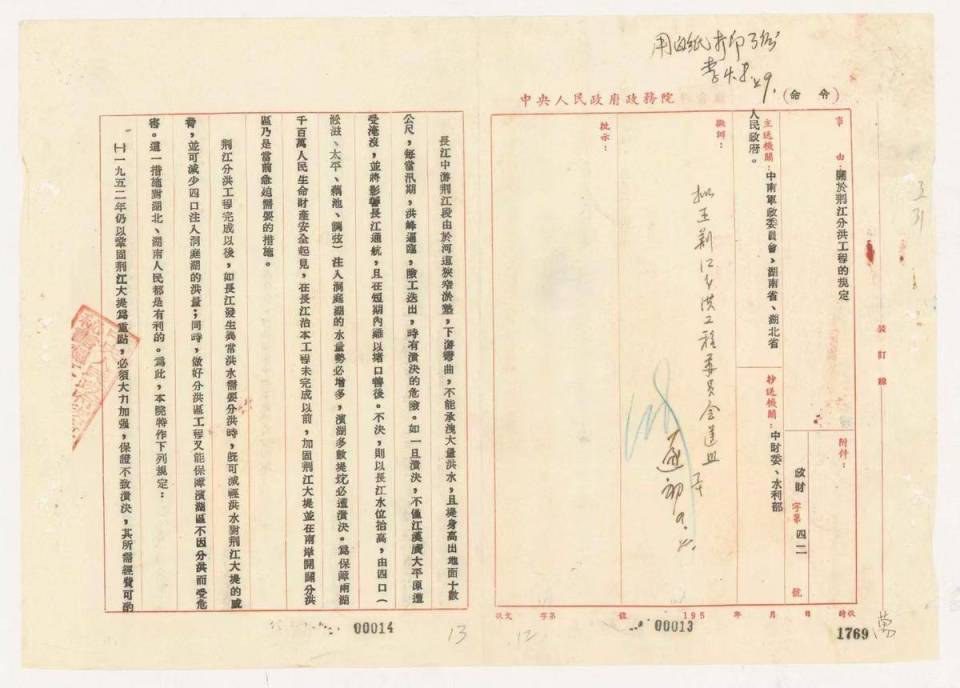 用白紙打印
中央人民政府政務院
（命令）
事由：關於荆江分洪工程的規定
附件：
主送機關：中南軍政委員會，湖南省、湖北省
人民政府。
抄送機關：中財委、水利部
政財字第四二號
擬辦：
批示：
裝訂線
收文 字第 號 195 年 月 日 時收
00013
1769
12
長江中游荆江段由於河道狹窄淤墊，下游彎曲，不能承洩大量洪水，且堤身高出地面十數
公尺，每當汛期，洪峰逼臨，險工迭出，時有潰決的危險。如一旦潰決，不僅江漢廣大平原遭
受淹沒，並將影響長江通航，且在短期內難以堵口善後。不決，則以長江水位抬高，由四口（
松滋、太平、藕池、調弦）注入洞庭湖的水量勢必增多，濱湖多數堤垸必遭潰決。爲保障兩湖
千百萬人民生命財產安全起見，在長江治本工程未完成以前，加固荆江大堤並在南岸開闢分洪
區乃是當前急迫需要的措施。
荆江分洪工程完成以後，如長江發生異常洪水需要分洪時，既可減輕洪水對荆江大堤的威
脅，並可減少四口注入洞庭湖的洪量；同時，做好分洪區工程又能保障濱湖區不因分洪而受危
害。這一措施對湖北、湖南人民都是有利的。爲此，本院特作下列規定：
(一)一九五二年仍以鞏固荆江大堤爲重點，必須大力加强，保證不致潰決，其所需經費可酌
00014
13